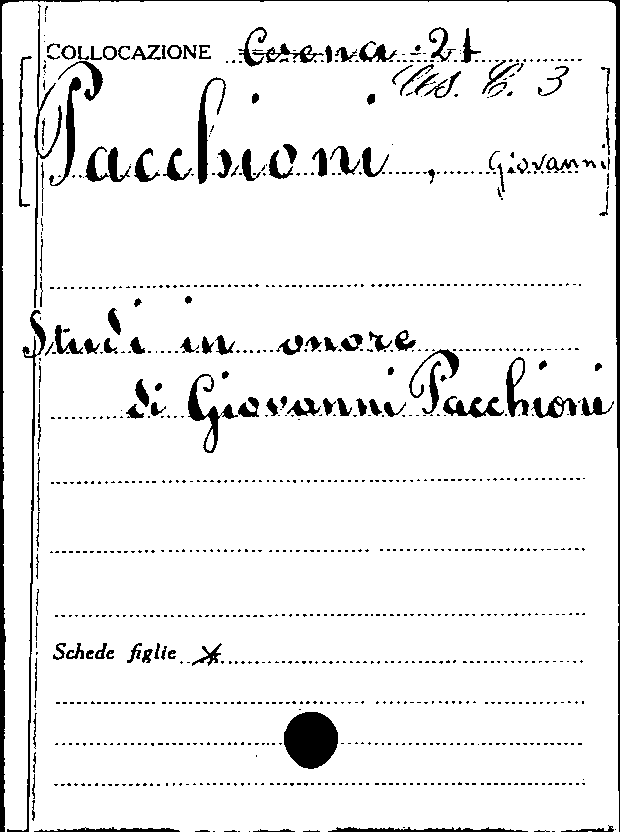 COLLOCAZIONE Cesena 21
Ces. C. 3
[Pacchioni, Giovanni]
Studi in onore
di Giovanni Pacchioni
Schede figlie